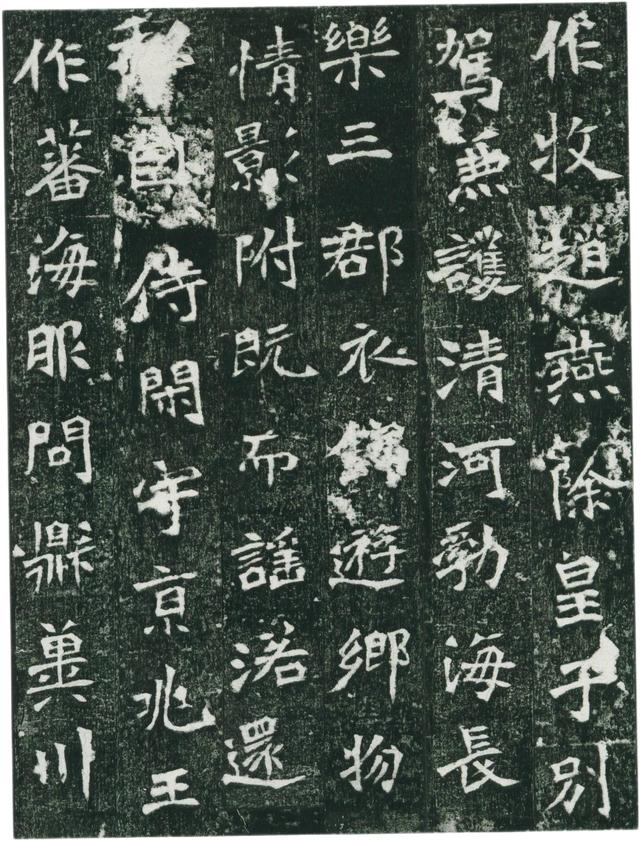 作牧趙燕除皇子別
駕兼護清河勃海長
樂三郡衣錦遊鄉物
情影附既而謠渃還
自侍閑守京兆王
作蕃海服問鼎冀川